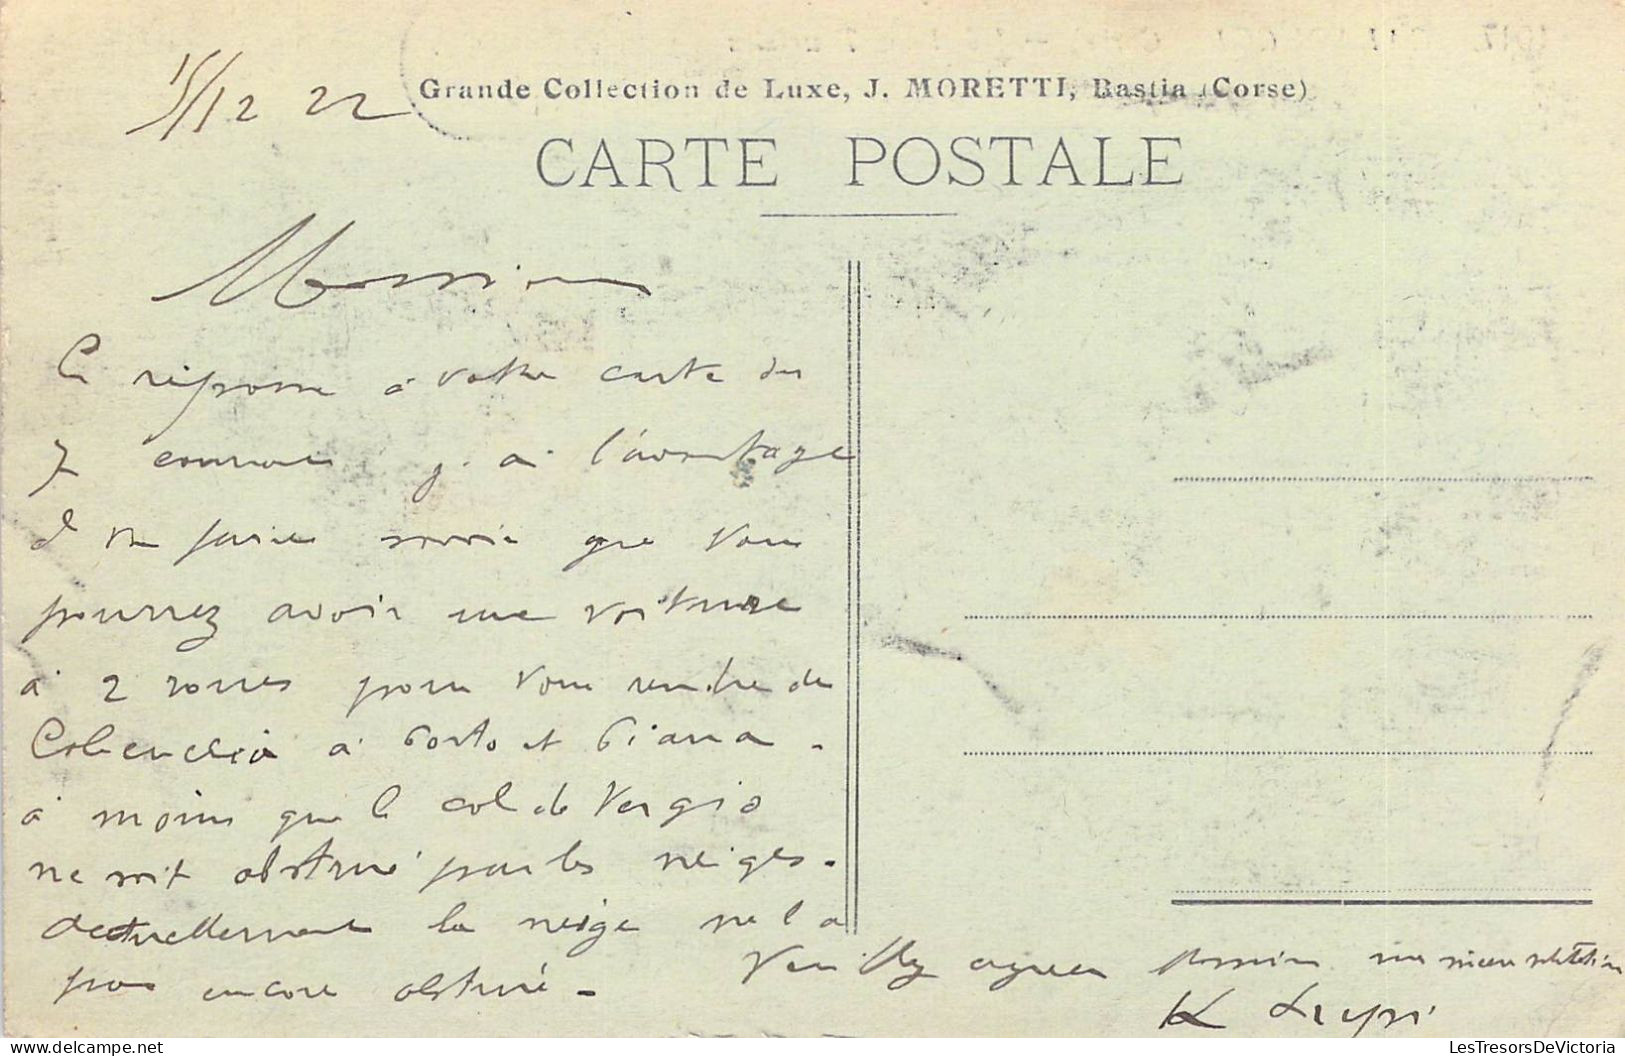 15/12 22
Grande Collection de Luxe, J. MORETTI, Bastia (Corse)
CARTE POSTALE
Monsieur
En réponse à votre carte du
7 courant j'ai l'avantage
de vous faire savoir que vous
pourrez avoir une voiture
à 2 roues pour vous rendre de
à Porto et Piana.
à moins que le col de Vergio
ne soit obstrué par les neiges.
Actuellement la neige ne l'a
pas encore obstrué.
Veuillez agréer Monsieur mes sincères salutations
LesTresorsDeVictoria